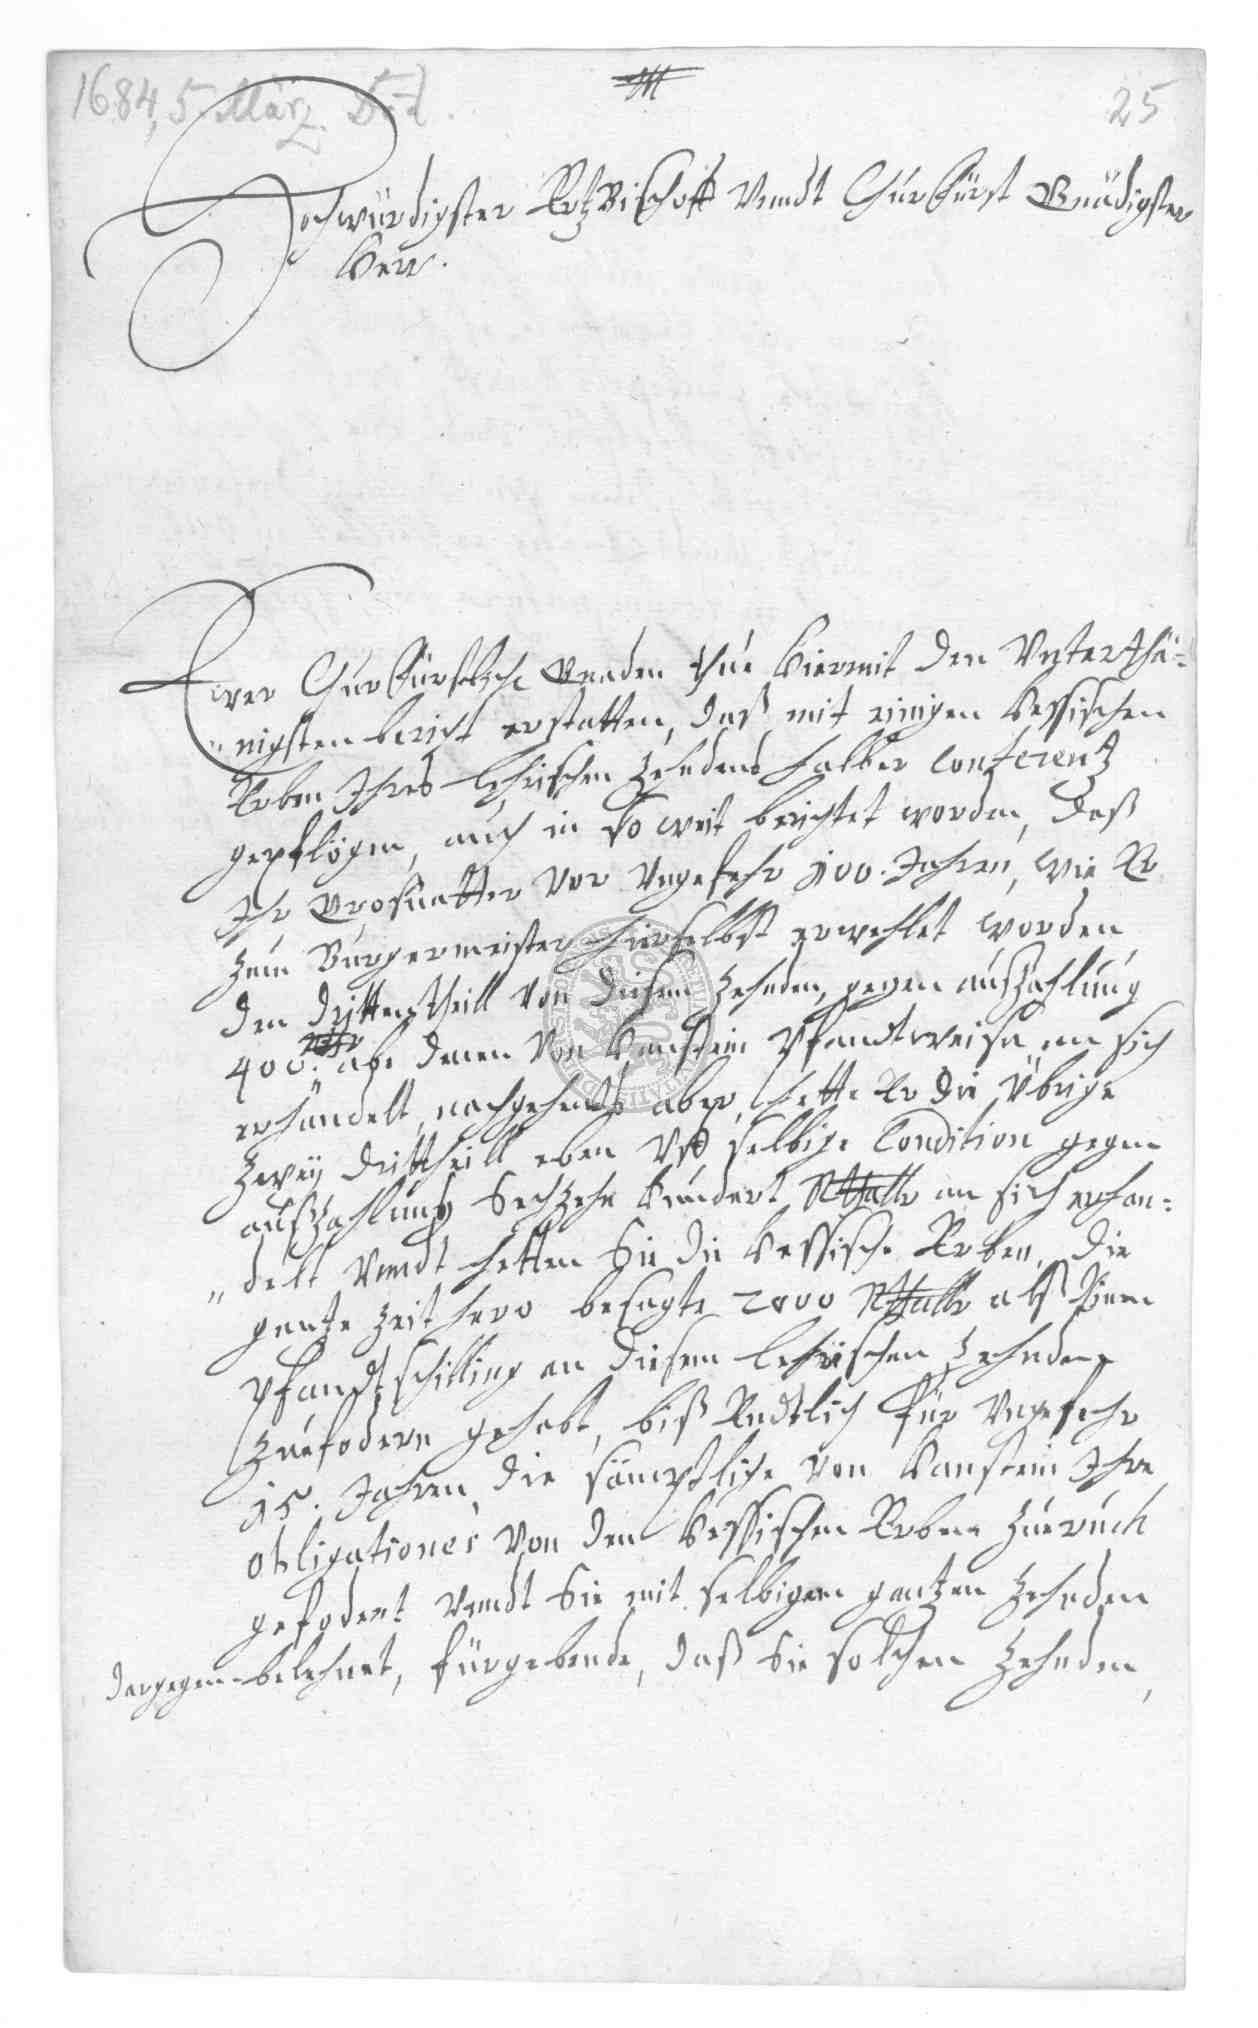 1684, 5. März. Dud.
25
Hochwürdigster Ertzbischoff Vnndt Churfürst Gnädigster
Herr.
Ewer Churfürstlche Gnaden thue hiermit den Vnterthä-
nigsten bericht erstatten, daß mit einigen Hessischen
Erben Ihres Lehnischen Zehndens halber conferentz
gepflogen, auch in so weit berichtet worden, daß
Ihr Grosvatter vor Vngefehr 100. Jahren, wie Er
zum Burgermeister hierselbst erwehlet worden
den dritten theill von diesem Zehnden, gegen außzahlung
400. rthr ahn denen von Hanstein Pfandtweise an sich
erhandelt, nachgehents aber, hette Er die übrige
zwey drittheill eben vff selbige Condition gegen
außzahlung Sechzehn hundert Rthallr an sich erhan-
delt Vnndt hetten Sie die Hessische Erben, die
gantze Zeit hero besagte 2000 Rthallr alß Ihren
Pfandtschilling an diesem Lehnischen Zehnden
zuefodern gehabt, biß Endtlich für Vngefehr
15. Jahren, die sämptliche von Hanstein Ihre
obligationes von den Hessischen Erben zueruck
gefodert Vnndt Sie mit selbigem gantzen Zehnden
dargegen belehnet, fürgebende, daß Sie solchen Zehnden,